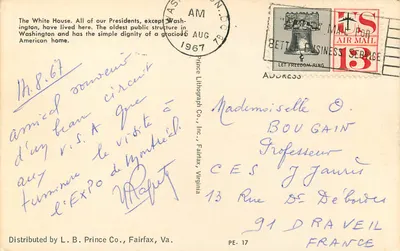 The White House. All of our Presidents, except Wash-
ington, have lived here. The oldest public structure in
Washington and has the simple dignity of a gracious
American home.
AM
16 AUG
1967
MAIL FOR
BETTER BUSINESS SERVICE
US
AIR MAIL
13
LET FREEDOM RING
ADDRESS
14.8.67
amical souvenir
d'un beau circuit
aux U.S.A que
termine la visite à
l'EXPO de Montréal.
Prince Lithograph Co., Inc., Fairfax, Virginia
Mademoiselle O
BOUGAIN
Professeur
CES J Jaurès
13 Rue Ds Débordes
91 DRAVEIL
FRANCE
Distributed by L. B. Prince Co., Fairfax, Va.
PE-17